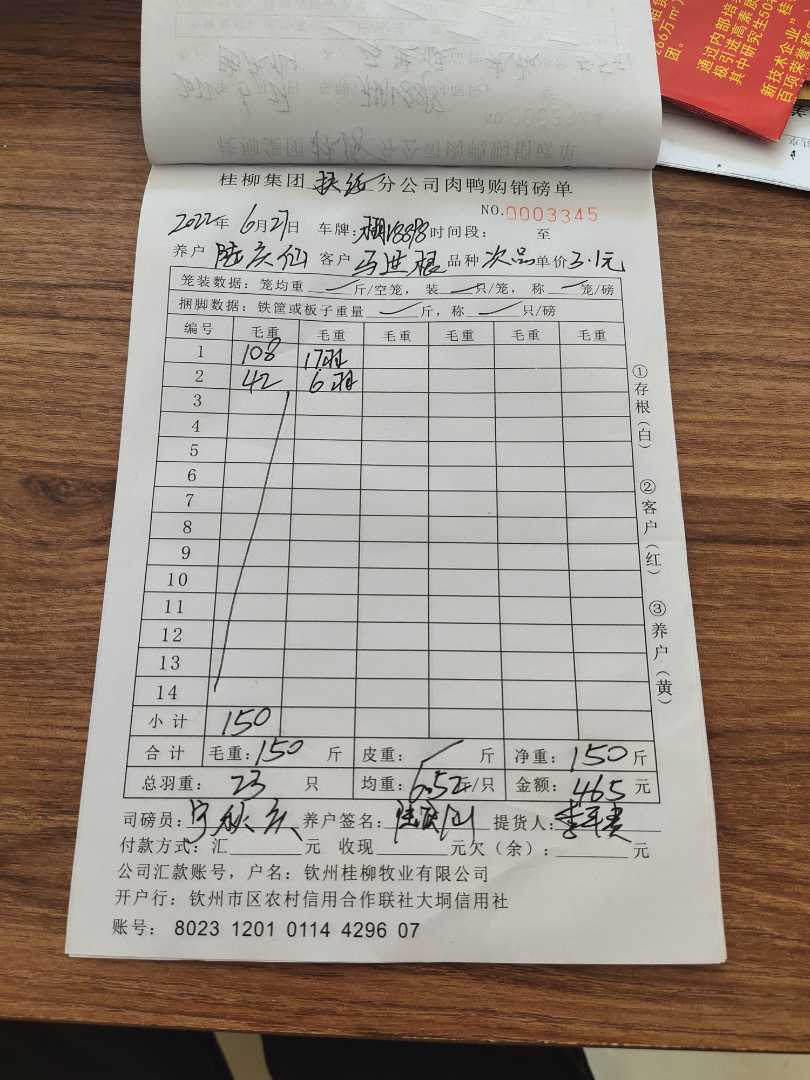 通过内部培
极引进高素质
其中研究生50
新技术企业"
百项荣誉称
团。
桂柳集团 分公司肉鸭购销磅单
NO.0003345
2022年6月27日 车牌: 时间段: 至
养户 陆庆仙 客户 马进根 品种 次品 单价 3.1元
笼装数据: 笼均重 / 斤/空笼, 装 / 只/笼, 称 / 笼/磅
捆脚数据: 铁筐或板子重量 / 斤, 称 / 只/磅
编号 毛重 毛重 毛重 毛重 毛重 毛重
1 108 17羽
2 42 6羽
3
4
5
6
7
8
9
10
11
12
13
14
小计 150
合计 毛重: 150 斤 皮重: / 斤 净重: 150 斤
总羽重: 23 只 均重: 6.52斤/只 金额: 465 元
司磅员: 养户签名: 陆庆仙 提货人:
付款方式: 汇 元 收现 元欠(余): 元
公司汇款账号, 户名: 钦州桂柳牧业有限公司
开户行: 钦州市区农村信用合作联社大垌信用社
账号: 8023 1201 0114 4296 07
①存根(白) ②客户(红) ③养户(黄)